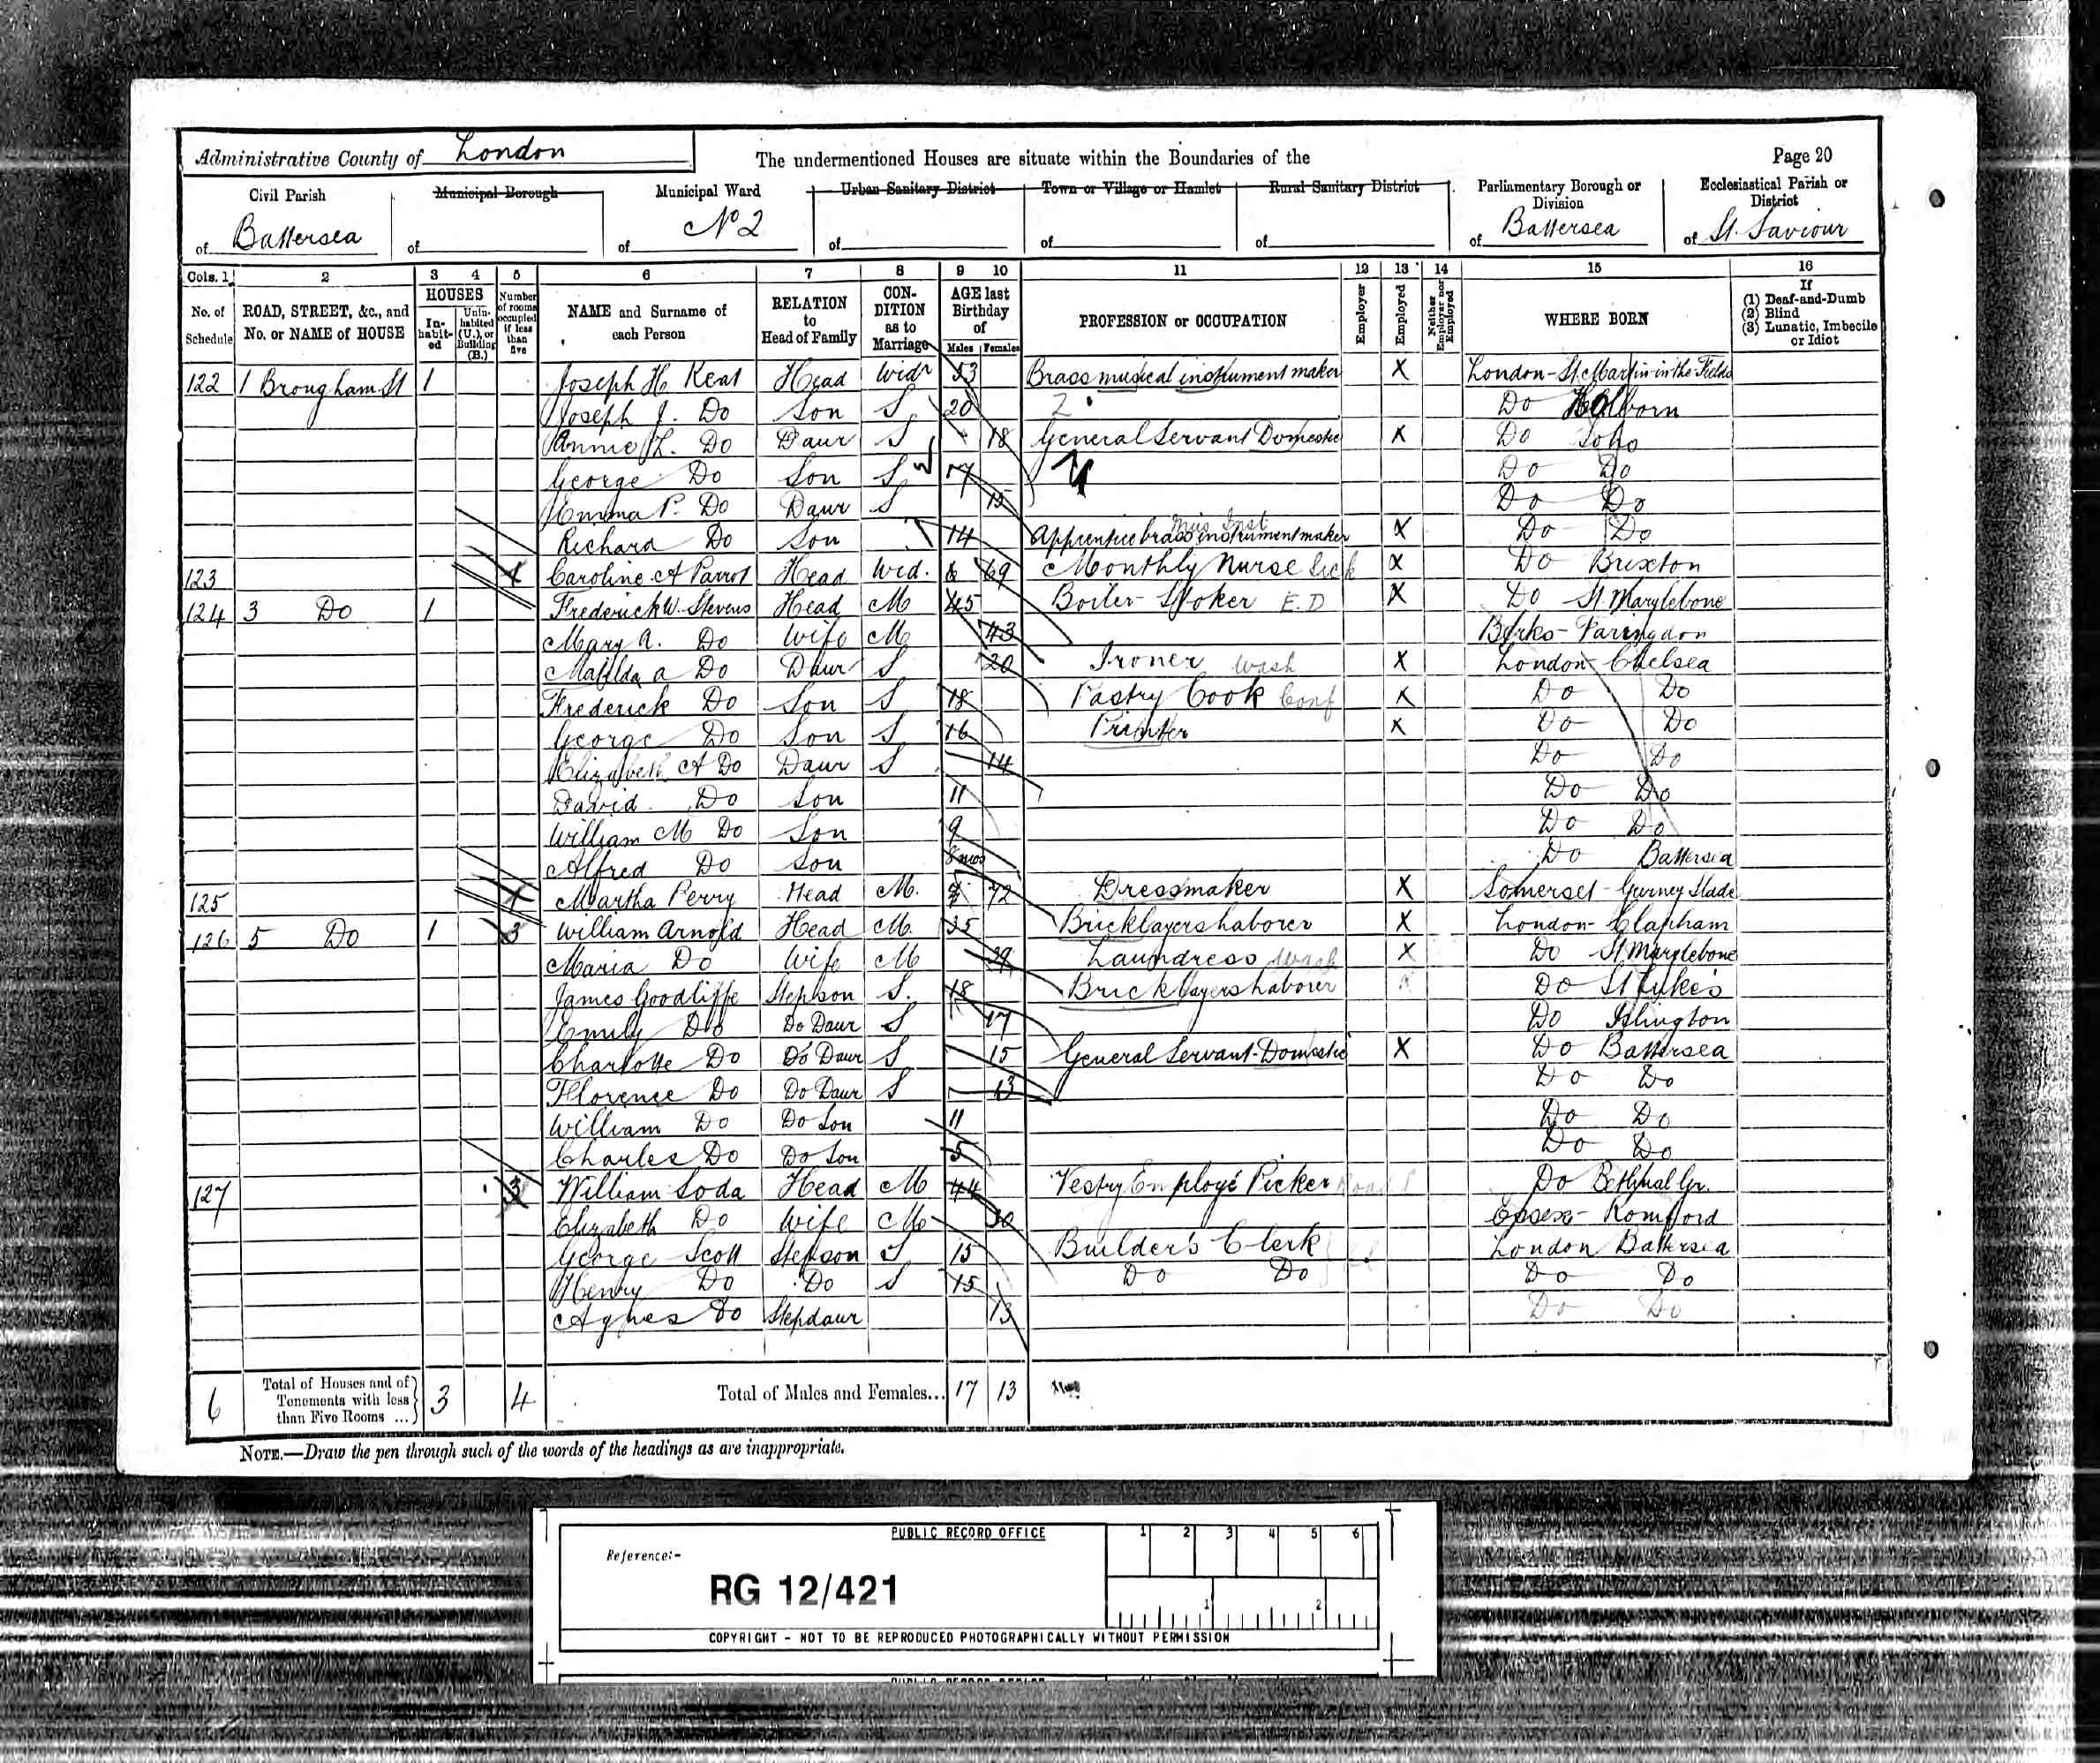 Administrative County of London
The undermentioned Houses are situate within the Boundaries of the
Page 20
Civil Parish of Battersea
Municipal Borough of
Municipal Ward of No 2
Urban Sanitary District of
Town or Village or Hamlet of
Rural Sanitary District of
Parliamentary Borough or Division of Battersea
Ecclesiastical Parish or District of St. Saviour
Cols. 1 2 3 4 5 6 7 8 9 10 11 12 13 14 15 16
No. of Schedule
ROAD, STREET, &c., and No. or NAME of HOUSE
HOUSES
In-habit-ed
Unin-habited (U.), or Building (B.)
Number of rooms occupied if less than five
NAME and Surname of each Person
RELATION to Head of Family
CON-DITION as to Marriage
AGE last Birthday of
Males Females
PROFESSION or OCCUPATION
Employer
Employed
Neither Employer nor Employed
WHERE BORN
If (1) Deaf-and-Dumb (2) Blind (3) Lunatic, Imbecile or Idiot
122 1 Brougham St 1 Joseph H. Keat Head Widr 53 Brass musical instrument maker X London - St. Martin in the Fields
Joseph J. Do Son S 20 Do Holborn
Annie L. Do Daur S 18 General Servant Domestic X Do Soho
George Do Son S 17 Do Do
Emma P. Do Daur S 15 Do Do
Richard Do Son 14 Apprentice brass Mus Inst instrument maker X Do Do
123 Caroline A Parrot Head Wid. 69 Monthly Nurse Sick X Do Brixton
124 3 Do 1 Frederick W. Stevens Head M 45 Boiler Stoker E.D X Do St. Marylebone
Mary A. Do Wife M 43 Berks - Faringdon
Matilda A Do Daur S 20 Ironer Wash X London Chelsea
Frederick Do Son S 18 Pastry Cook Conf X Do Do
George Do Son S 16 Printer X Do Do
Elizabeth A Do Daur S 14 Do Do
David Do Son 11 Do Do
William M Do Son 9 Do Do
Alfred Do Son 8 mos Do Battersea
125 Martha Perry Head M. 72 Dressmaker X Somerset - Gurney Slade
126 5 Do 1 3 William Arnold Head M. 35 Bricklayers Laborer X London - Clapham
Maria Do Wife M 39 Laundress Wash X Do St Marylebone
James Goodliffe Stepson S. 18 Bricklayers Laborer X Do St Luke's
Emily Do Do Daur S 17 Do Islington
Charlotte Do Do Daur S 15 General Servant - Domestic X Do Battersea
Florence Do Do Daur S 13 Do Do
William Do Do Son 11 Do Do
Charles Do Do Son 5 Do Do
127 3 William Soda Head M 44 Vestry Employé Picker Do Bethnal Gr.
Elizabeth Do Wife M 30 Essex - Romford
George Scott Stepson S 15 Builder's Clerk London Battersea
Henry Do Do S 15 Do Do Do Do
Agnes Do Stepdaur 13 Do Do
6 Total of Houses and of Tenements with less than Five Rooms ... 3 4 Total of Males and Females... 17 13
NOTE.—Draw the pen through such of the words of the headings as are inappropriate.
PUBLIC RECORD OFFICE
1 2 3 4 5 6
Reference:-
RG 12/421
1 2
COPYRIGHT - NOT TO BE REPRODUCED PHOTOGRAPHICALLY WITHOUT PERMISSION
PUBLIC RECORD OFFICE